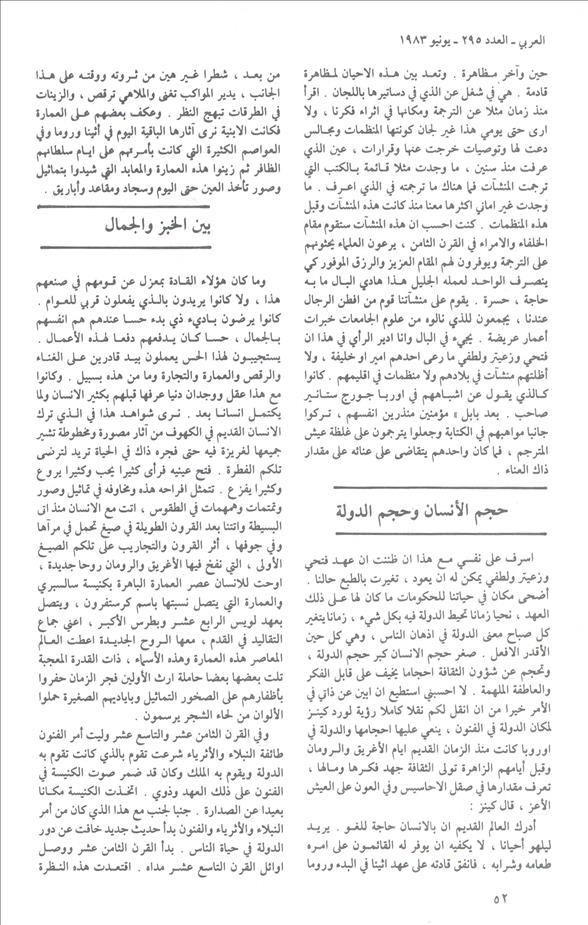 العربي ـ العدد ٢٩٥ ـ يونيو ١٩٨٣
حين وآخر مظاهرة . وتعد بين هذه الاحيان لمظاهرة
قادمة . هي في شغل عن الذي في دساتيرها باللجان . اقرأ
منذ زمان مثلا عن الترجمة ومكانها في اثراء فكرنا ، ولا
ارى حتى يومي هذا غير لجان كونتها المنظمات ومجالس
دعت لها وتوصيات خرجت عنها وقرارات ، عين الذي
عرفت منذ سنين ، ما وجدت مثلا قائمة بالكتب التي
ترجمت المنشآت فما هناك ما ترجمته في الذي اعرف . ما
وجدت غير اماني اكثرها معنا منذ كانت هذه المنشآت وقبل
هذه المنظمات . كنت احسب ان هذه المنشآت ستقوم مقام
الخلفاء والامراء في القرن الثامن ، يرعون العلماء يحثونهم
على الترجمة ويوفرون لهم المقام العزيز والرزق الموفور كي
ينصرف الواحد لعمله الجليل هذا هادي البال ما به
حاجة ، حسرة . يقوم على منشآتنا قوم من افطن الرجال
عندنا ، يجمعون للذي نالوه من علوم الجامعات خبرات
أعمار عريضة . يجيء في البال وانا ادير الرأي في هذا ان
فتحي وزعيتر ولطفي ما رعى احدهم امير او خليفة ، ولا
أظلتهم منشآت في بلادهم ولا منظمات في اقليمهم . كانوا
كالذي يقول عن اشباههم في اوربا جورج ستانير
صاحب . بعد بابل » مؤمنين منذرين انفسهم ، تركوا
جانبا مواهبهم في الكتابة وجعلوا يترجمون على غلظة عيش
المترجم ، فما كان واحدهم يتقاضى على عنائه على مقدار
ذاك العناء .
حجم الأنسان وحجم الدولة
اسرف على نفسي مع هذا ان ظننت ان عهد فتحي
وزعيتر ولطفي يمكن له ان يعود ، تغيرت بالطبع حالنا .
أضحى مكان في حياتنا للحكومات ما كان لها على ذلك
العهد ، نحيا زمانا تحيط الدولة فيه بكل شيء ، زمانا يتغير
كل صباح معنى الدولة في اذهان الناس ، وهي كل حين
الأقدر الافعل . صغر حجم الانسان كبر حجم الدولة ،
وتحجم عن شؤون الثقافة احجاما يخيف على قابل الفكر
والعاطفة الملهمة . لا احسبني استطيع ان ابين عن ذاتي في
الأمر خيرا من ان انقل لكم نقلا كاملا رؤية لورد كينز
لمكان الدولة في الفنون ، ينعي عليها احجامها والدولة في
اوروبا كانت منذ الزمان القديم ايام الأغريق والرومان
وقبل أيامهم الزاهرة تولى الثقافة جهد فكرها ومالها ،
تعرف مقدارها في صقل الاحاسيس وفي العون على العيش
الأعز ، قال كينز :
أدرك العالم القديم ان بالانسان حاجة للغو . يريد
ليلهو أحيانا ، لا يكفيه ان يوفر له القائمون على امره
طعامه وشرابه ، فانفق قادته على عهد اثينا في البدء وروما
من بعد ، شطرا غير هين من ثروته ووقته على هذا
الجانب ، يدير المواكب تغنى والملاهي ترقص ، والزينات
في الطرقات تبهج النظر . وعكف بعضهم على العمارة
فكانت الابنية نرى آثارها الباقية اليوم في أثينا وروما وفي
العواصم الكثيرة التي كانت بأمرتهم على ايام سلطانهم
الظافر ثم زينوا هذه العمارة والمعابد التي شيدوا بتماثيل
وصور تأخذ العين حتى اليوم وسجاد ومقاعد وأباريق .
بين الخبز والجمال
وما كان هؤلاء القادة بمعزل عن قومهم في صنعهم
هذا ، ولا كانوا يريدون بالذي يفعلون قربى للعوام .
كانوا يرضون باديء ذي بدء حسا عندهم هم انفسهم
بالجمال ، حسا كان يدفعهم دفعا لهذه الأعمال .
يستجيبون لهذا الحس يعملون بيد قادرين على الغناء
والرقص والعمارة والتجارة وما من هذه بسبيل . وكانوا
مع هذا عقل ووجدان دنيا عرفها قبلهم بكثير الانسان ولما
يكتمل انسانا بعد . نرى شواهد هذا في الذي ترك
الانسان القديم في الكهوف من آثار مصورة ومخطوطة تشير
جميعها لغريزة فيه حتى فجره ذاك في الحياة تريد لترضى
تلكم الفطرة . فتح عينيه فرأى كثيرا يحب وكثيرا يروع
وكثيرا يفزع . تتمثل افراحه هذه ومخاوفه في تماثيل وصور
وتمتمات وهمهمات في الطقوس ، اتت مع الانسان منذ اتى
البسيطة واتتنا بعد القرون الطويلة في صيغ تحمل في مرآها
وفي جوفها ، أثر القرون والتجاريب على تلكم الصيغ
الأولى ، التي نفخ فيها الأغريق والرومان روحا جديدة ،
اوحت للانسان عصر العمارة الباهرة بكنيسة سالسبري
والعمارة التي يتصل نسبتها باسم كرستفرون ، ويتصل
بعهد لويس الرابع عشر وبطرس الأكبر ، اعني جماع
التقاليد في القدم ، معها الروح الجديدة اعطت العالم
المعاصر هذه العمارة وهذه الأسماء ، ذات القدرة المعجبة
تلت بعضها بعضا حاملة ارث الأولين فجر الزمان حفروا
بأظفارهم على الصخور التماثيل وباياديهم الصغيرة حملوا
الألوان من لحاء الشجر يرسمون .
وفي القرن الثامن عشر والتاسع عشر وليت أمر الفنون
طائفة النبلاء والأثرياء شرعت تقوم بالذي كانت تقوم به
الدولة ويقوم به الملك وكان قد ضمر صوت الكنيسة في
الفنون على ذلك العهد وذوي . اتخذت الكنيسة مكانا
بعيدا عن الصدارة . جنبا لجنب مع هذا الذي كان من أمر
النبلاء والأثرياء والفنون بدأ حديث جديد خافت عن دور
الدولة في حياة الناس . بدأ القرن الثامن عشر ووصل
اوائل القرن التاسع عشر مداه . اقتعدت هذه النظرة
٥٢